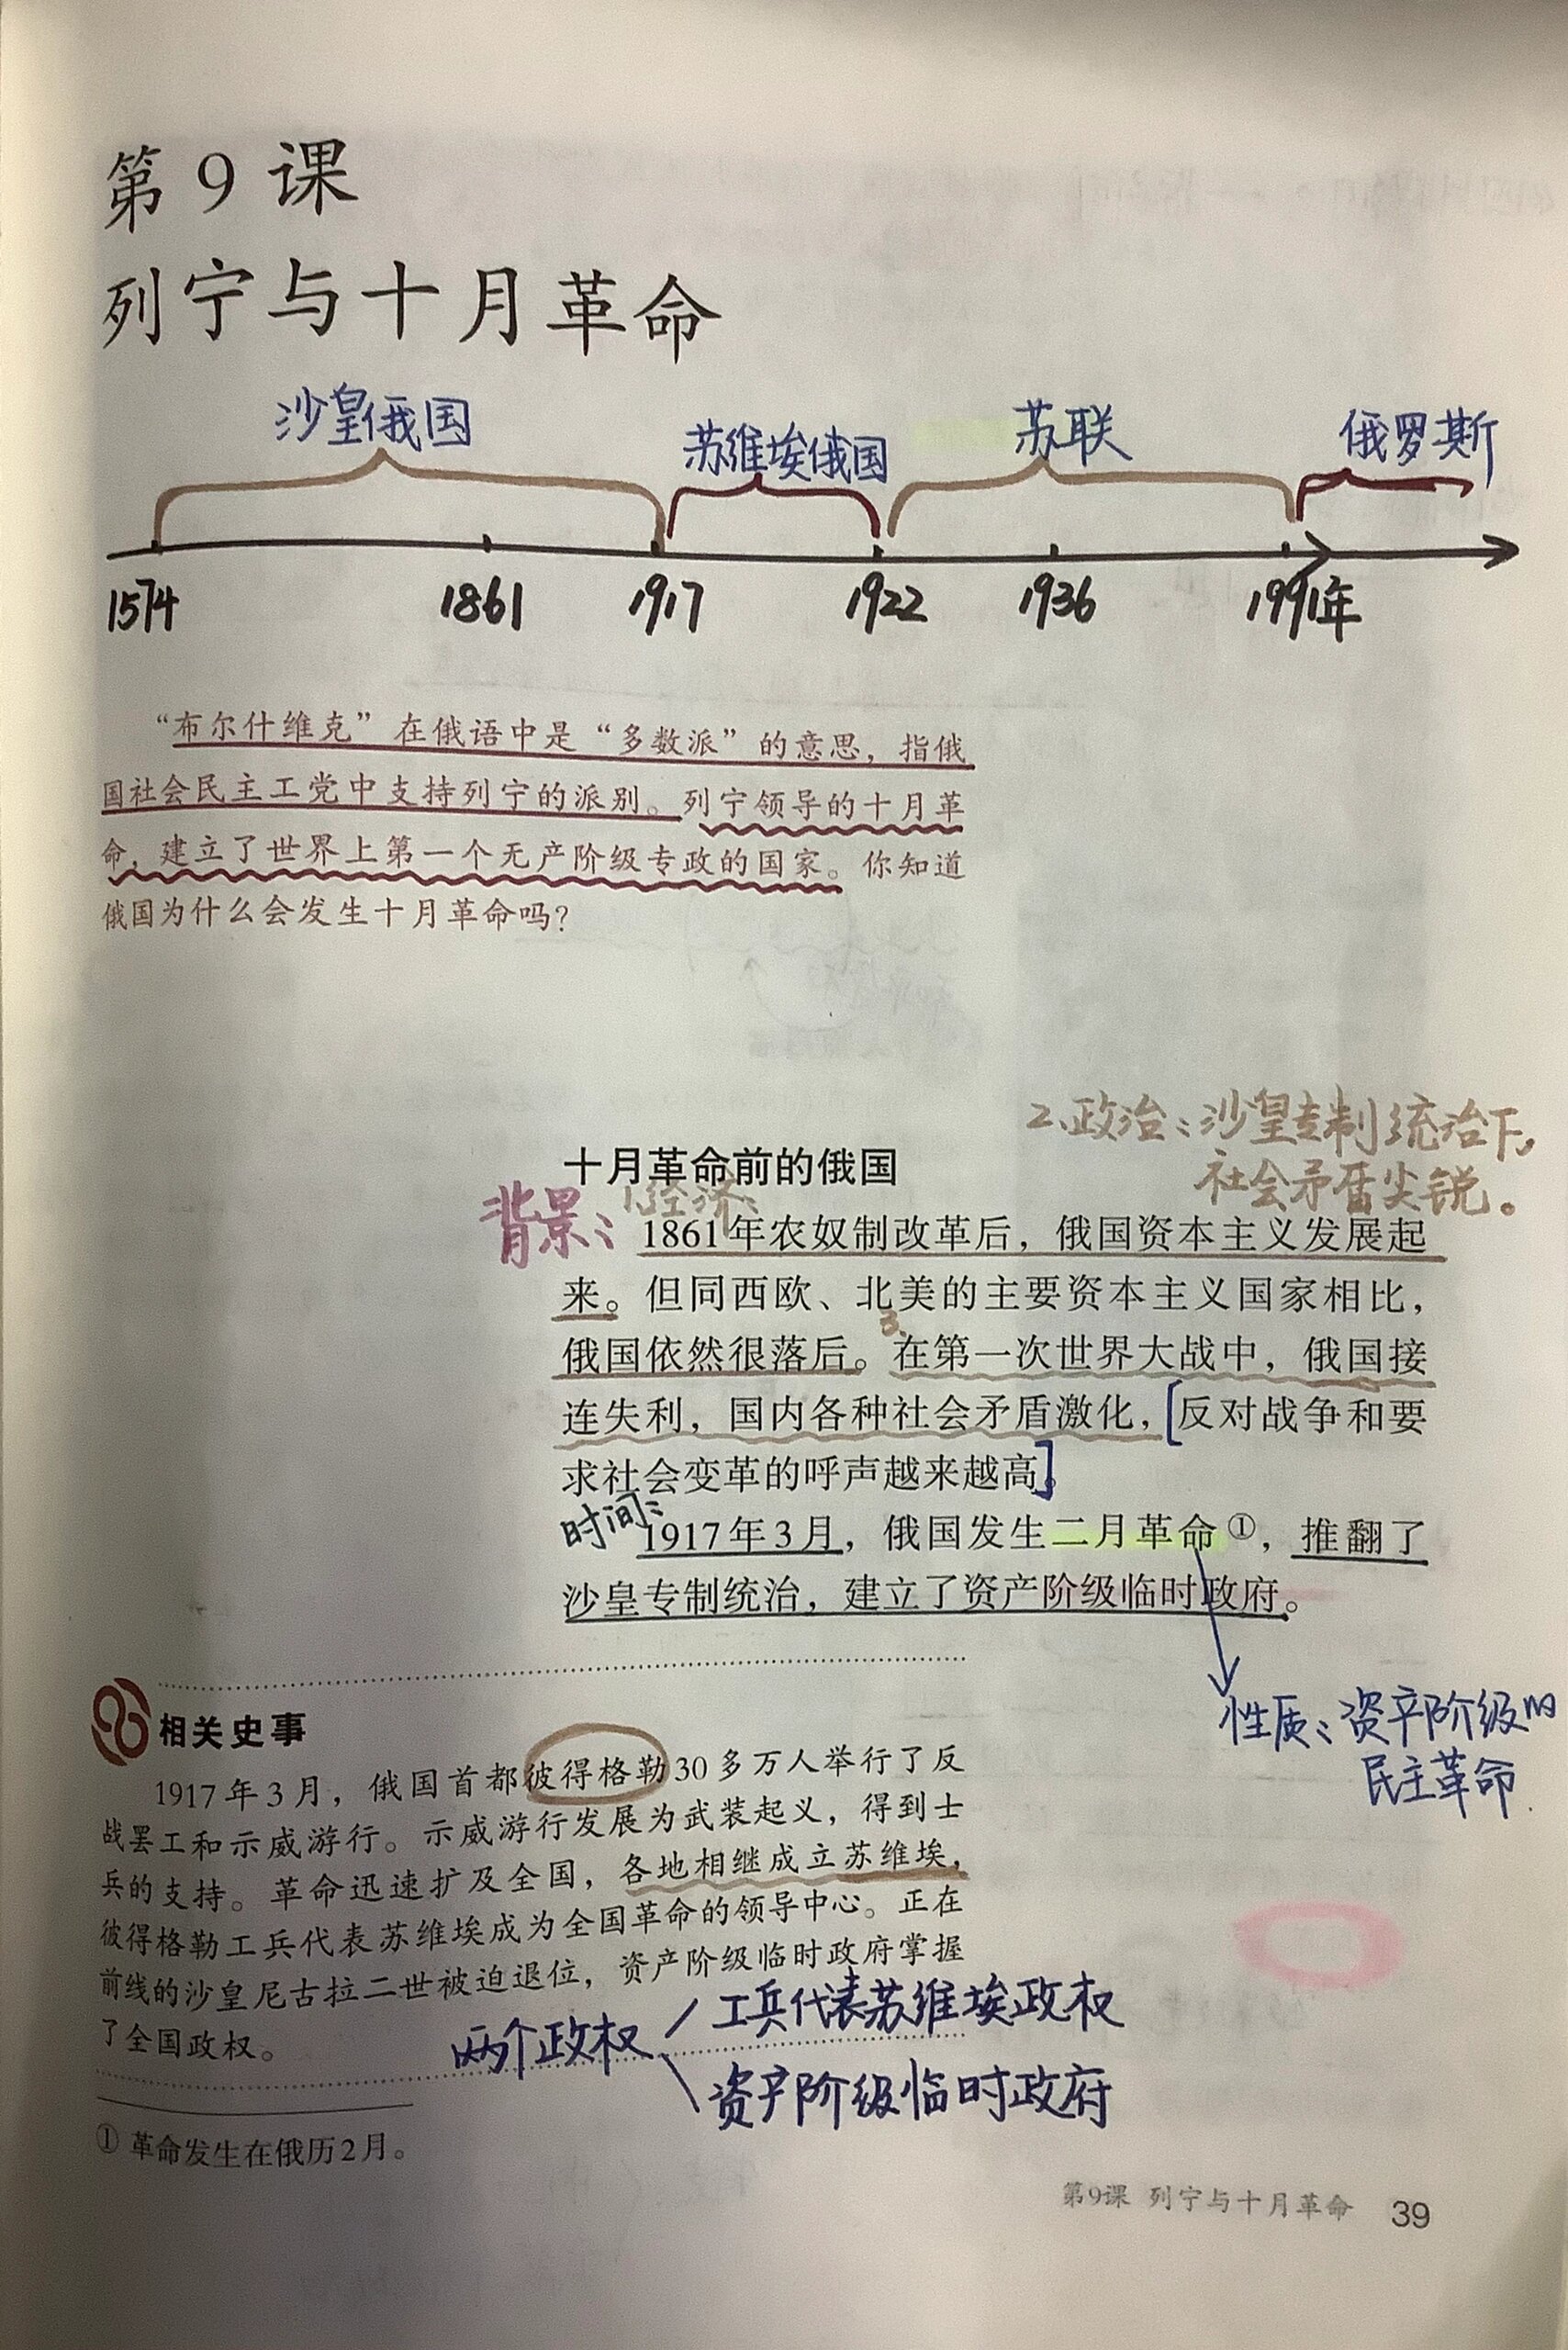 第9课
列宁与十月革命
沙皇俄国 苏维埃俄国 苏联 俄罗斯
1574 1861 1917 1922 1936 1991年
“布尔什维克”在俄语中是“多数派”的意思，指俄
国社会民主工党中支持列宁的派别。列宁领导的十月革
命，建立了世界上第一个无产阶级专政的国家。你知道
俄国为什么会发生十月革命吗？
2、政治：沙皇专制统治下，
社会矛盾尖锐。
十月革命前的俄国
背景： 1.经济：
1861年农奴制改革后，俄国资本主义发展起
来。但同西欧、北美的主要资本主义国家相比，
3.
俄国依然很落后。在第一次世界大战中，俄国接
连失利，国内各种社会矛盾激化，[反对战争和要
求社会变革的呼声越来越高]。
时间：
1917年3月，俄国发生二月革命①，推翻了
沙皇专制统治，建立了资产阶级临时政府。
性质：资产阶级的
民主革命.
相关史事
1917年3月，俄国首都彼得格勒30多万人举行了反
战罢工和示威游行。示威游行发展为武装起义，得到士
兵的支持。革命迅速扩及全国，各地相继成立苏维埃，
彼得格勒工兵代表苏维埃成为全国革命的领导中心。正在
前线的沙皇尼古拉二世被迫退位，资产阶级临时政府掌握
了全国政权。
两个政权 工兵代表苏维埃政权
资产阶级临时政府
① 革命发生在俄历2月。
第9课 列宁与十月革命 39